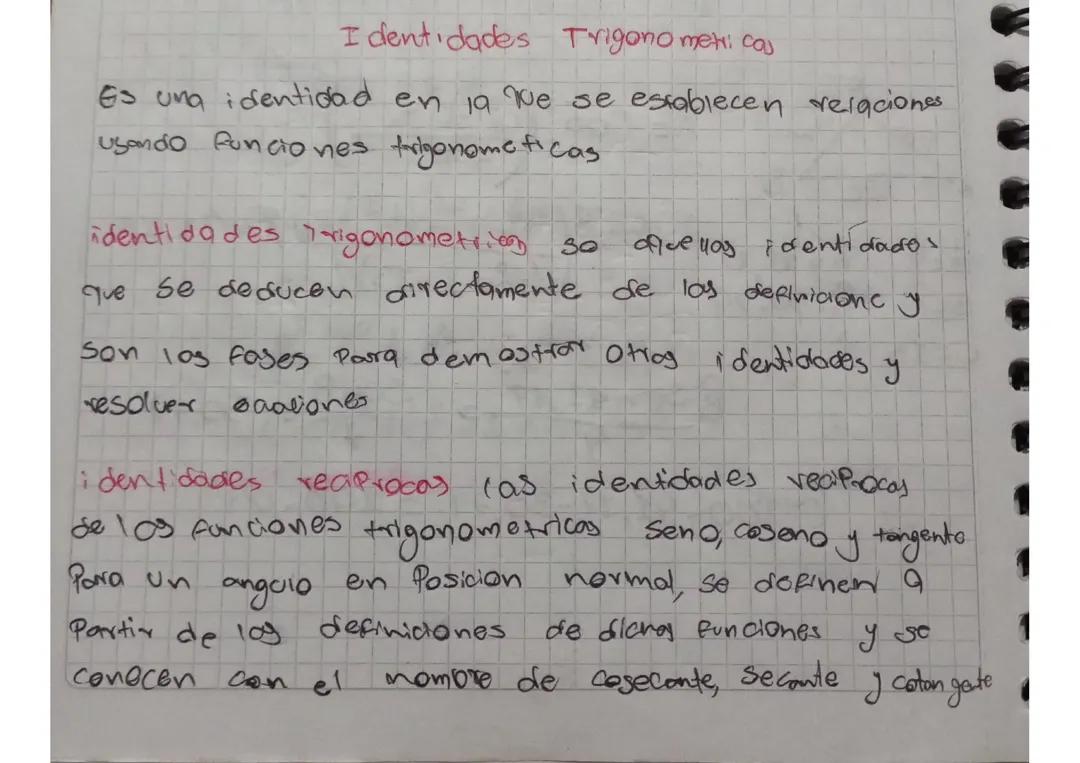 Identidades Trigonometricas
Es una identidad en la que se establecen relaciones
usando funciones trigonometicas
identidades Trigonometricas so aquellas identidades
que se deducen directamente de las definicione y
son las fases para demostrar otras identidades y
resolver
identidades reciprocas las identidades reciprocas
de los funciones trigonometricas seno, coseno y tangente
Para un angulo en Posicion normal, se definen a
Partir de las definiciones de dichas funciones y se
conocen con el nombre de cosecante, secante y cotangete